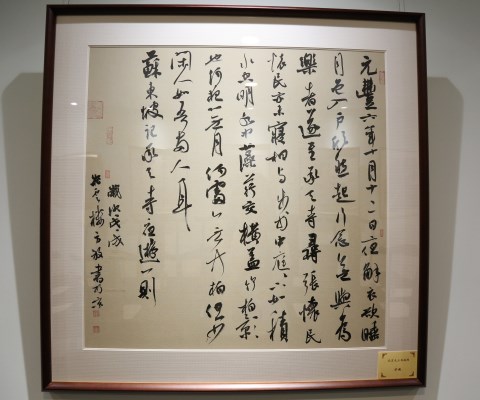 元豐六年十月十二日夜解衣欲睡
月色入戶欣然起行念無與為
樂者遂至承天寺尋張懷民
懷民亦未寢相與步於中庭〻下如積
水空明水中藻荇交橫蓋竹柏影
也何夜無月何處無竹柏但少
閑人如吾兩人耳
蘇東坡記承天寺夜遊一則
歲次戊戌